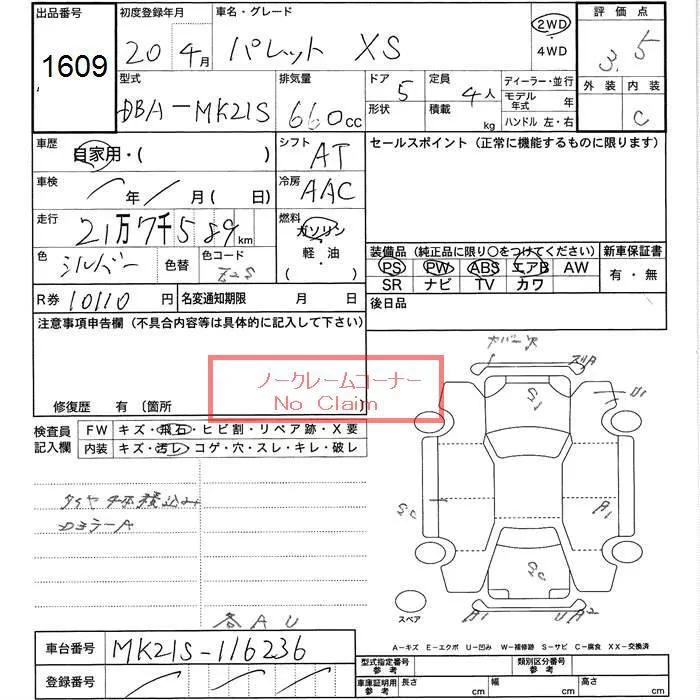 出品番号 初度登録年月 車名・グレード 評価点
1609 20年 4月 パレット XS 2WD・4WD 3.5
型式 排気量 ドア 定員 ディーラー・並行 外装 内装
DBA-MK21S 660cc 5 4人 モデル年式 年 C
形状 積載 kg ハンドル 左・右
車歴 自家用・( ) シフト AT セールスポイント (正常に機能するものに限ります)
車検 年 月 ( 日) 冷房 AAC
走行 21万7千589km 燃料 ガソリン・軽・油
色 シルバー 色替 色コード Z2S
装備品 (純正品に限り○をつけてください) 新車保証書
PS PW ABS エアB AW 有・無
SR ナビ TV カワ
R券 10110円 名変通知期限 月 日 後日品
注意事項申告欄 (不具合内容等は具体的に記入して下さい)
ノークレームコーナー
No Claim
カバー欠
ズA
S1
U1
修復歴 有 〔箇所 〕
検査員記入欄 FW キズ・飛石・ヒビ割・リペア跡・X要
内装 キズ・汚レ・コゲ・穴・スレ・キレ・破レ
タイヤ4本積込み
DミラーA
A1
S2
スペア
各AU
A1
UA2
A-キズ E-エクボ U-凹み W-補修跡 S-サビ C-腐食 XX-交換済
車台番号 MK21S-116236
型式指定番号 参考 類別区分番号 参考
登録番号
車庫証明用 参考 長さ cm 幅 cm 高さ cm